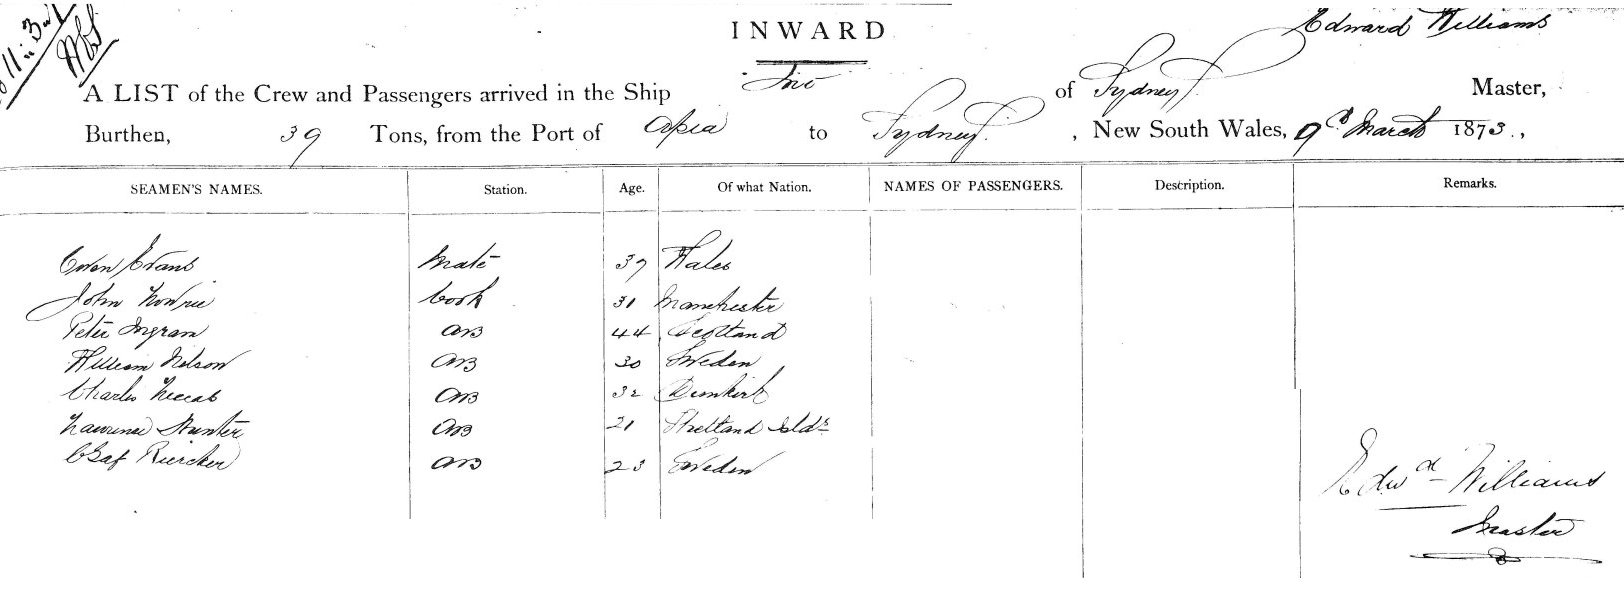 INWARD
Edward Williams
A LIST of the Crew and Passengers arrived in the Ship of Sydney Master,
Burthen, 39 Tons, from the Port of Apia to Sydney , New South Wales, 9th March 1873.,
SEAMEN'S NAMES. Station. Age. Of what Nation. NAMES OF PASSENGERS. Description. Remarks.
Owen Evans Mate 37 Wales
John Cook 31 Manchester
Peter Ingram AB 44 Scotland
William Nelson AB 30 Sweden
Charles AB 32 Dunkirk
Lawrence Hunter AB 21 Shetland Islds
AB 23 Sweden
Edwd Williams
Master